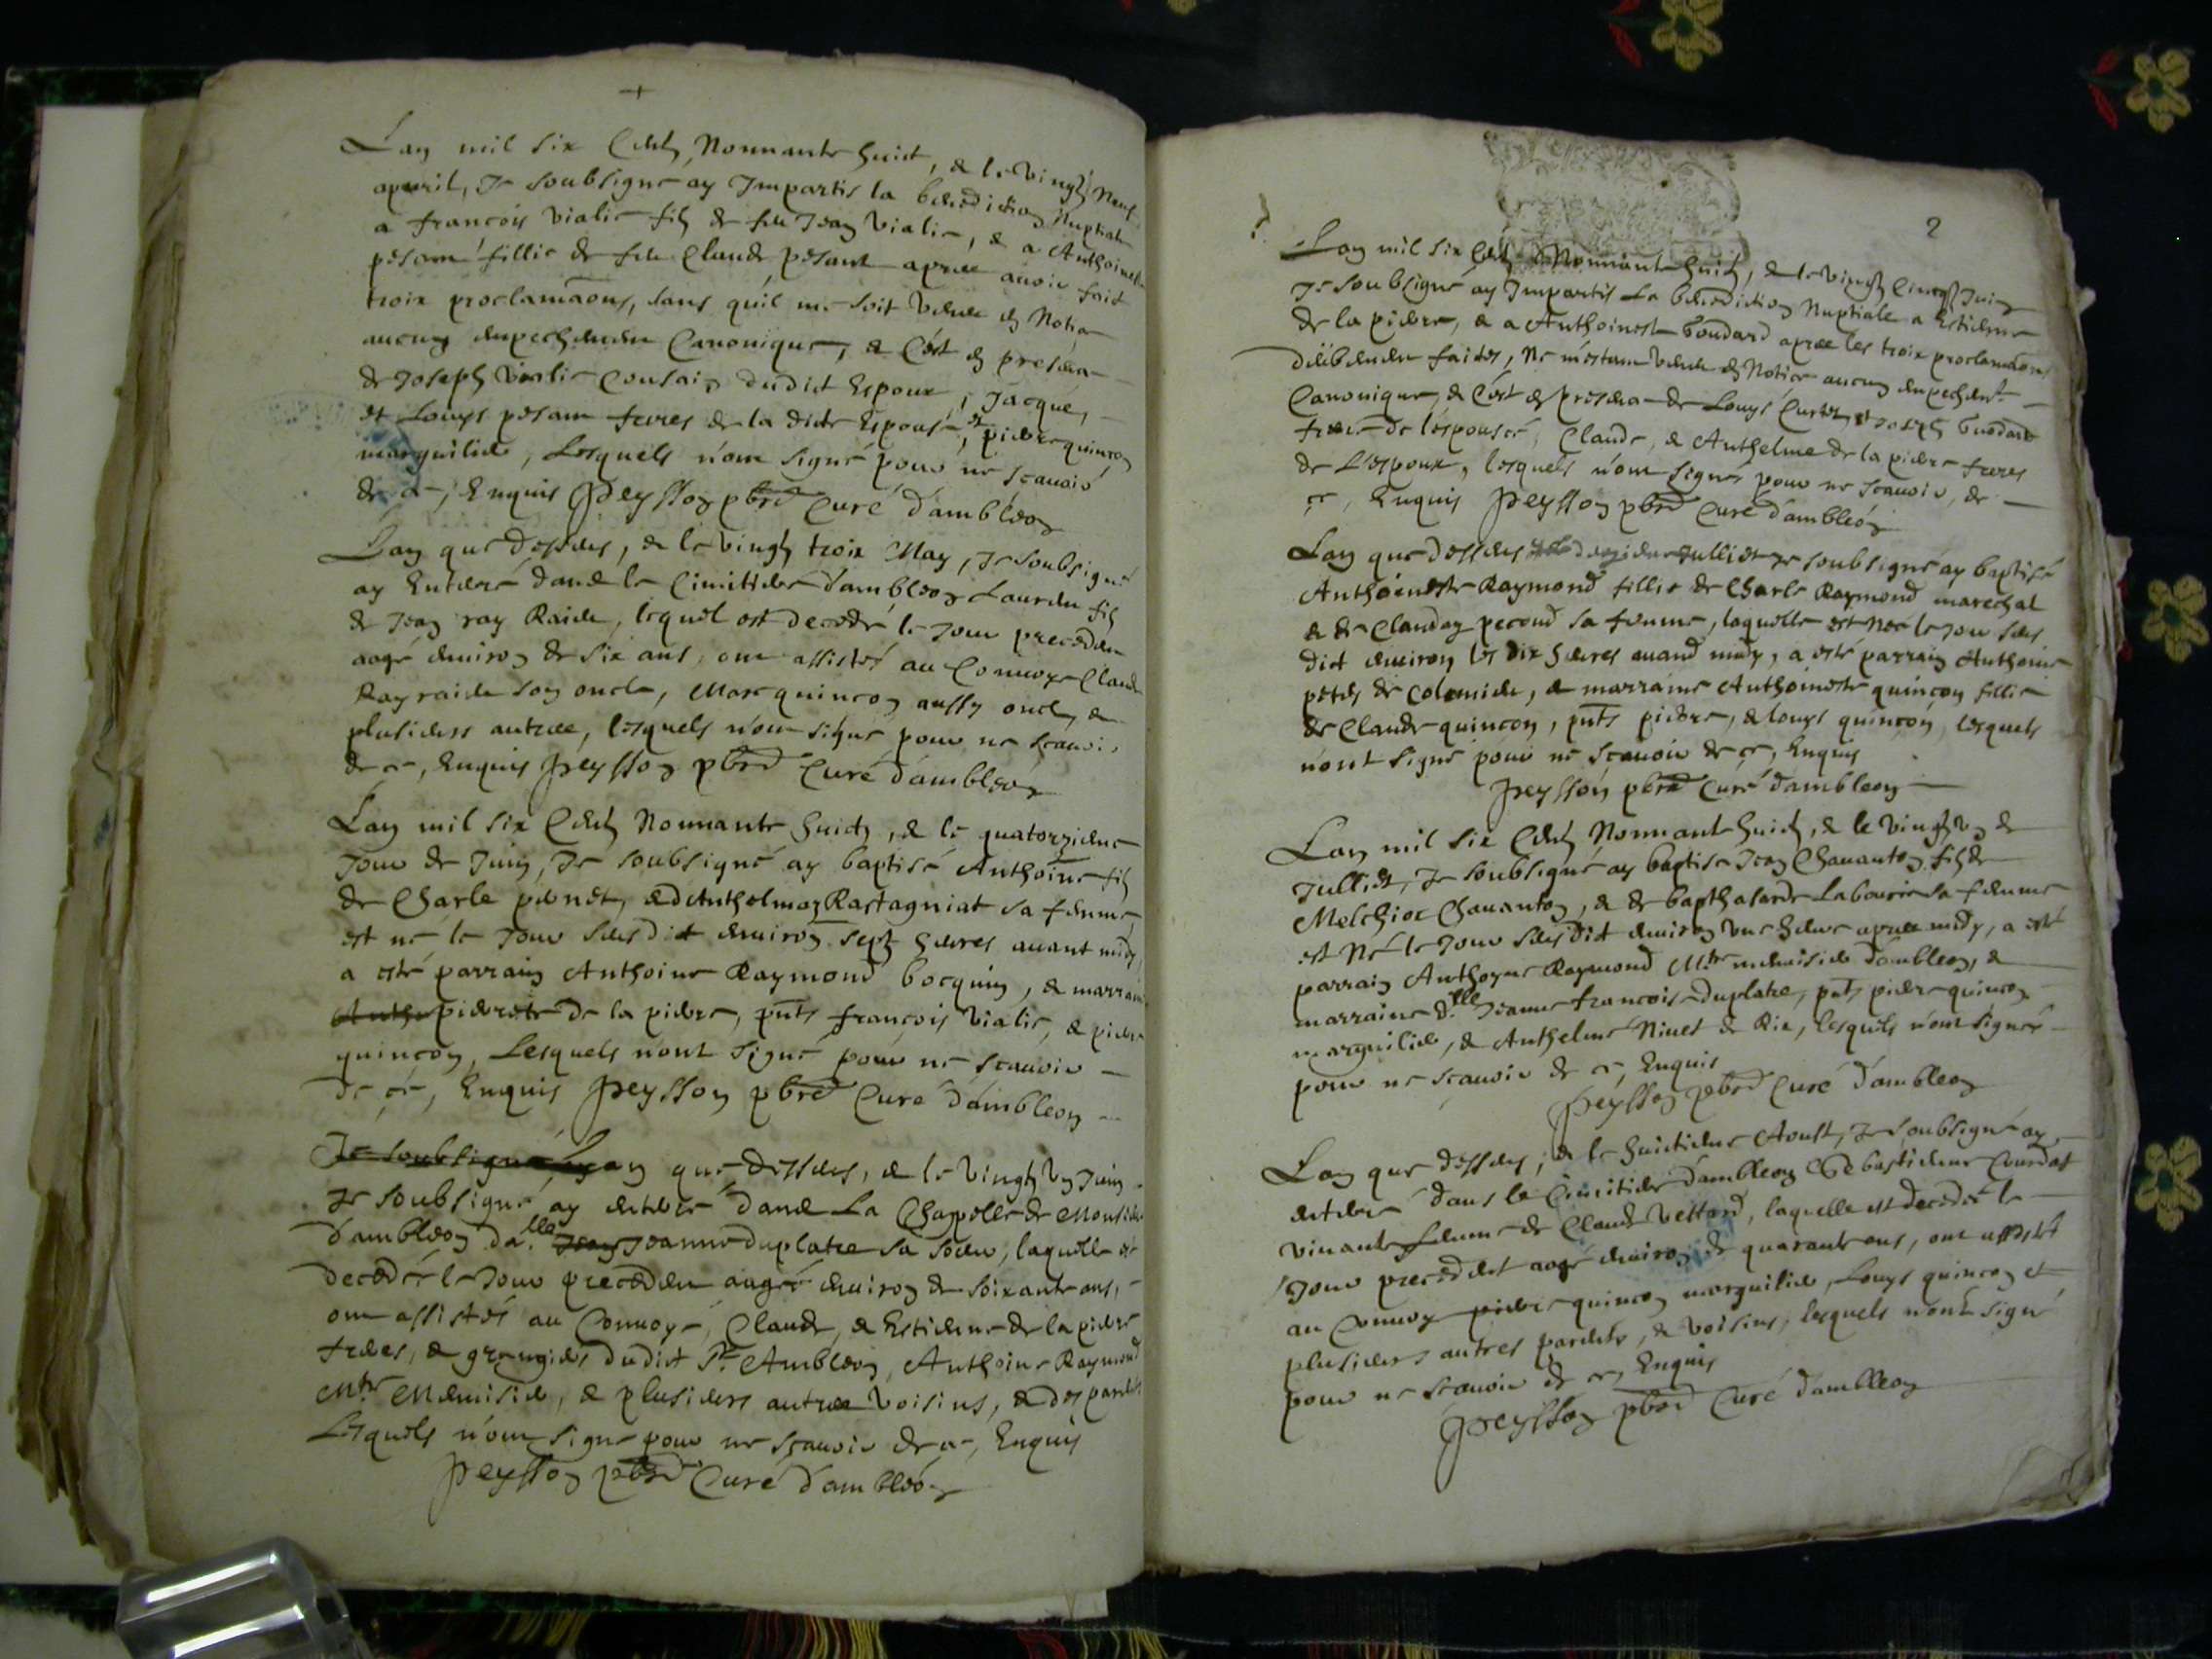 Lan mil six Cents Nonnante huict, & le vingt Neuf
apuril, Je soubsigné ay Impartis la benediction Nuptiale
a françois vialie fils de feu Jean vialie, & a Anthoinette
pesant fillie de feu Claude pesant apres auoir fait
trois proclamaõns, sans qu'il me soit venu en Notice
aucun empechement Canonique, & C'est en presence
de Joseph vialie Cousain dudict Espoux, Jacque,
et Louys pesant freres de la dicte Espouse, et pierre quinson
marguilier, Lesquels n'ont signé pour ne scauoir
de ce, Enquis peysson pbre Curé d'ambleon
Lan que dessus, & le vingt trois May, Je soubsigné
ay Enterré dans le Cimitiere d'ambleon Laurent fils
de Jean ray Raide, lequel est decedé le Jour precedent
aagé enuiron de six ans, ont assistes au Conuoye Claude
Ray raide son oncle, Marc quinson aussy oncle, &
plusieurs autres, lesquels n'ont signé pour ne scauoir
de ce, Enquis peysson pbre Curé d'ambleon
Lan mil six Cents Nonnante huict, & le quatorzieme
Jour de Juin, Je soubsigné ay baptisé Anthoine fils
de Charle penet, & d'Anthelmaz Rastagniat sa femme
est né le Jour susdict enuiron sept heures auant midy,
a esté parrain Anthoine Raymond bocquin, & marraine
Antho pierrete de la pierre, pnts françois vialie, & pierre
quinson, Lesquels n'ont signé pour ne scauoir
de ce, Enquis peysson pbre Curé d'ambleon
Je soubsigné, ay Lan que dessus, & le vingt un Juin
Je soubsigné ay enterré dans La Chapelle de Monsieur
d'ambleon da.lle Jean Jeanne duplatre sa soeur, laquelle est
decedée le Jour precedent aagée enuiron de soixante ans,
ont assistés au Conuoye, Claude, & Estienne de la pierre
freres, & grangiers dudict Sr. Ambleon, Anthoine Raymond
Mtre Menuisier, & plusieurs autres voisins, & des parents
Lesquels n'ont signé pour ne scauoir de ce, Enquis
peysson pbre Curé d'ambleon
2
Lan mil six Cents Nonnante huict, & le vingt Cinq Juin
Je soubsigné ay Impartis La benediction Nuptiale a Estienne
de la pierre, & a Anthoinette Goudard apres les trois proclamaõns
deübement faictes, Ne m'estant venu en Notice aucun empechemt
Canonique, & C'est en presence de Louys Curtet, et Joseph Goudard
frere de l'espouse, Claude, & Anthelme de la pierre freres
de L'espoux, lesquels n'ont signés pour ne scauoir, de
ce, Enquis peysson pbre Curé d'ambleon
Lan que dessus Julliet Je soubsigné ay baptisé
Anthoinette Raymond fillie de Charle Raymond marechal
& de Claudaz pecoud sa femme, laquelle est Née le Jour sus
dict enuiron les dix heures auand midy, a esté parrain Anthoine
petes de Colomieu, & marraine Anthoinette quinson fillie
de Claude quinson, pnts pierre, & louys quinson, lesquels
n'ont signé pour ne scauoir de ce, Enquis
peysson pbre Curé d'ambleon
Lan mil six Cents Nonnant huict, & le vingt un de
Julliet, Je soubsigné ay baptisé Jean Chauanton fils de
Melchior Chauanton, & de bapthasarde Labourie sa femme
est Né le Jour susdict enuiron une heure apres midy, a esté
parrain Anthoyne Raymond Mtre menuisier d'ambleon, &
marraine d.lle Jeanne françoise duplatre, pnts pierre quinson
marguilier, & Anthelme Niuet de Rix, lesquels n'ont signés
pour ne scauoir de ce, Enquis
peysson pbre Curé d'ambleon
Lan que dessus, & le huictieme Aoust, Je soubsigné ay
enterré dans le Cimitiere d'ambleon Sebastienne Courdat
viuante femme de Claude Vettard, laquelle est decedée le
Jour precedent aagé enuiron de quarante ans, ont assistés
au Conuoy pierre quinson marguilier, Louys quinson et
plusieurs autres parents, & voisins, lesquels n'ont signé
pour ne scauoir de ce, Enquis
peysson pbre Curé d'ambleon